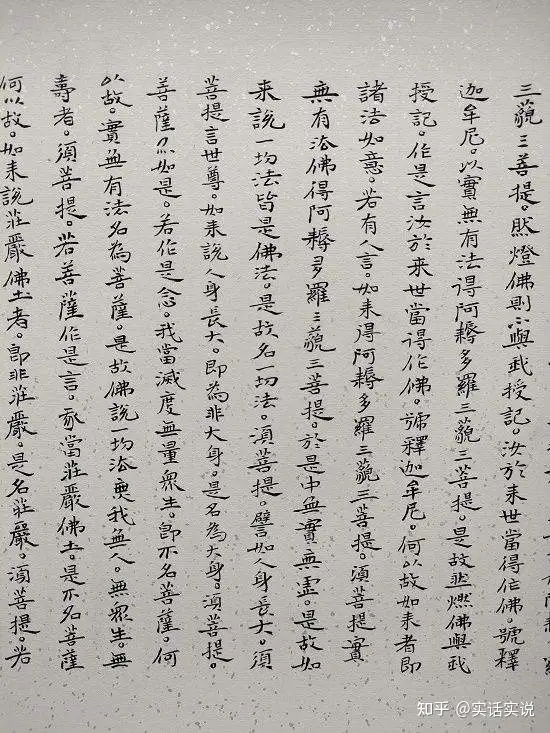 三藐三菩提。然燈佛則不與我授記。汝於来世當得作佛。號釋
迦牟尼。以實無有法得阿耨多羅三藐三菩提。是故然燃佛與我
授記。作是言汝於来世當得作佛。號釋迦牟尼。何以故如来者即
諸法如意。若有人言。如来得阿耨多羅三藐三菩提。須菩提實
無有法佛得阿耨多羅三藐三菩提。於是中無實無虛。是故如
来說一切法皆是佛法。是故名一切法。須菩提。譬如人身長大。須
菩提言世尊。如来說人身長大。即為非大身。是名為大身。須菩提。
菩薩亦如是。若作是念。我當滅度無量衆生。即不名菩薩。何
以故。實無有法名為菩薩。是故佛說一切法無我無人。無衆生。無
壽者。須菩提。若菩薩作是言。我當莊嚴佛土。是不名菩薩
何以故。如来說莊嚴佛土者。即非莊嚴。是名莊嚴。須菩提。若
知乎 @实话实说